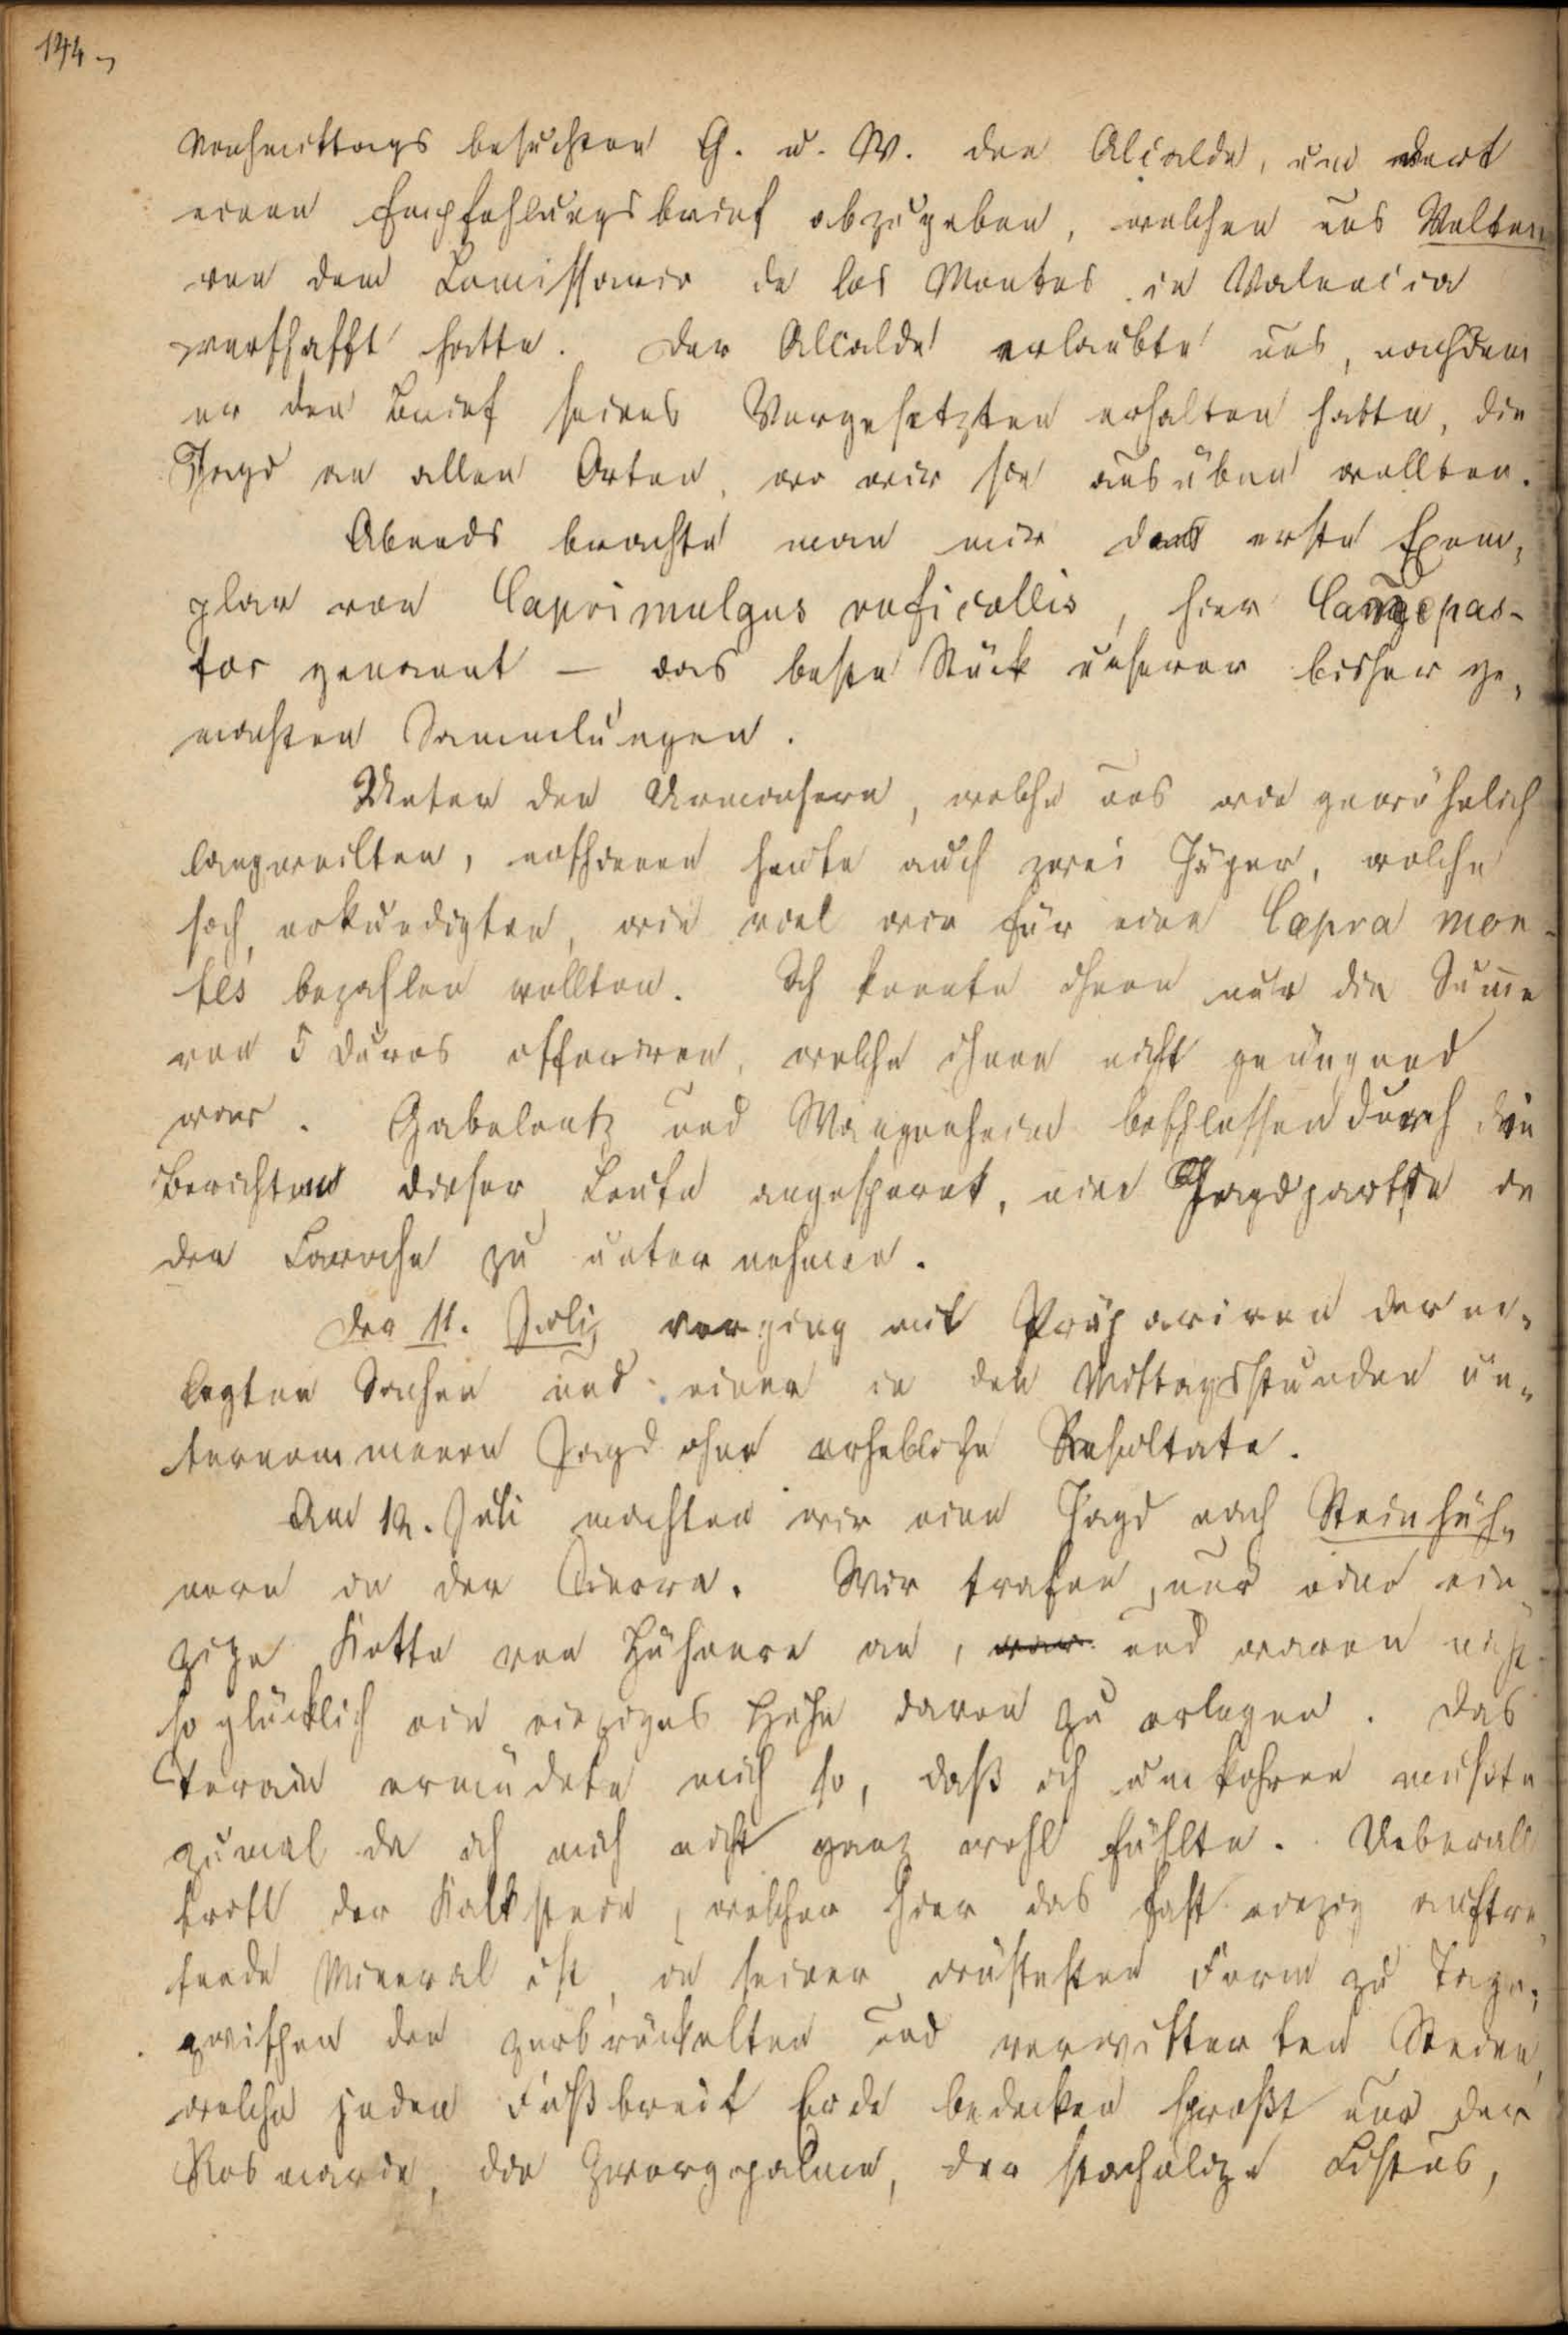 144.
Nachmittags besuchten G. u. W. den Alcalde, um dort
einen Empfehlungsbrief abzugeben, welchen uns Walter
von dem Comissario de los Montes in Valencia
verschafft hatte. Der Alcalde erlaubte uns, nachdem
er den Brief seines Vorgesetzten erhalten hatte, die
Jagd an allen Orten, wo wir sie ausüben wollten.
Abends brachte man mir das erste Exem,
plar von Caprimulgus ruficollis, hier
tor genannt – das beste Stück unserer bisher ge,
machten Sammlungen.
Unter den Anwohnern, welche uns wie gewöhnlich
langweilten, erschienen heute auch zwei Jäger, welche
sich erkundigten, wie viel wir für eine Capra mon-
tes bezahlen wollten. Ich konnte ihnen nur die Sum̄e
von 5 Duros offeriren, welche ihnen nicht genügend
war. Gabelentz und Wangenheim beschlossen durch die
Berichte dieser Leute angespornt, eine Jagdpartie in
den Baroche zu unternehmen.
Der 11. Juli verging mit Präpariren der er,
legten Sachen und einer in den Mittagsstunden un,
ternommenen Jagd ohne erhebliche Resultate.
Am 12. Juli machten wir eine Jagd nach Steinhüh,
nern in der Sierra. Wir trafen nur eine ein
zige Kette von Hühnern an, war und waren nicht
so glücklich ein einziges Huhn davon zu erlegen. Das
Terain ermüdete mich so, daß ich umkehren mußte
zumal da ich mich nicht ganz wohl fühlte. Ueberall
tritt der Kalkstein, welcher hier das fast einzig auftre
tende Mineral ist, in seiner wüstesten Form zu Tage,
zwischen den zerbröckelten und verwitterten Steinen,
welche jeden Fußbreit Erde bedecken sproßt nur der
Rosmarin, die Zwergpalme, der stachelige Cistus,